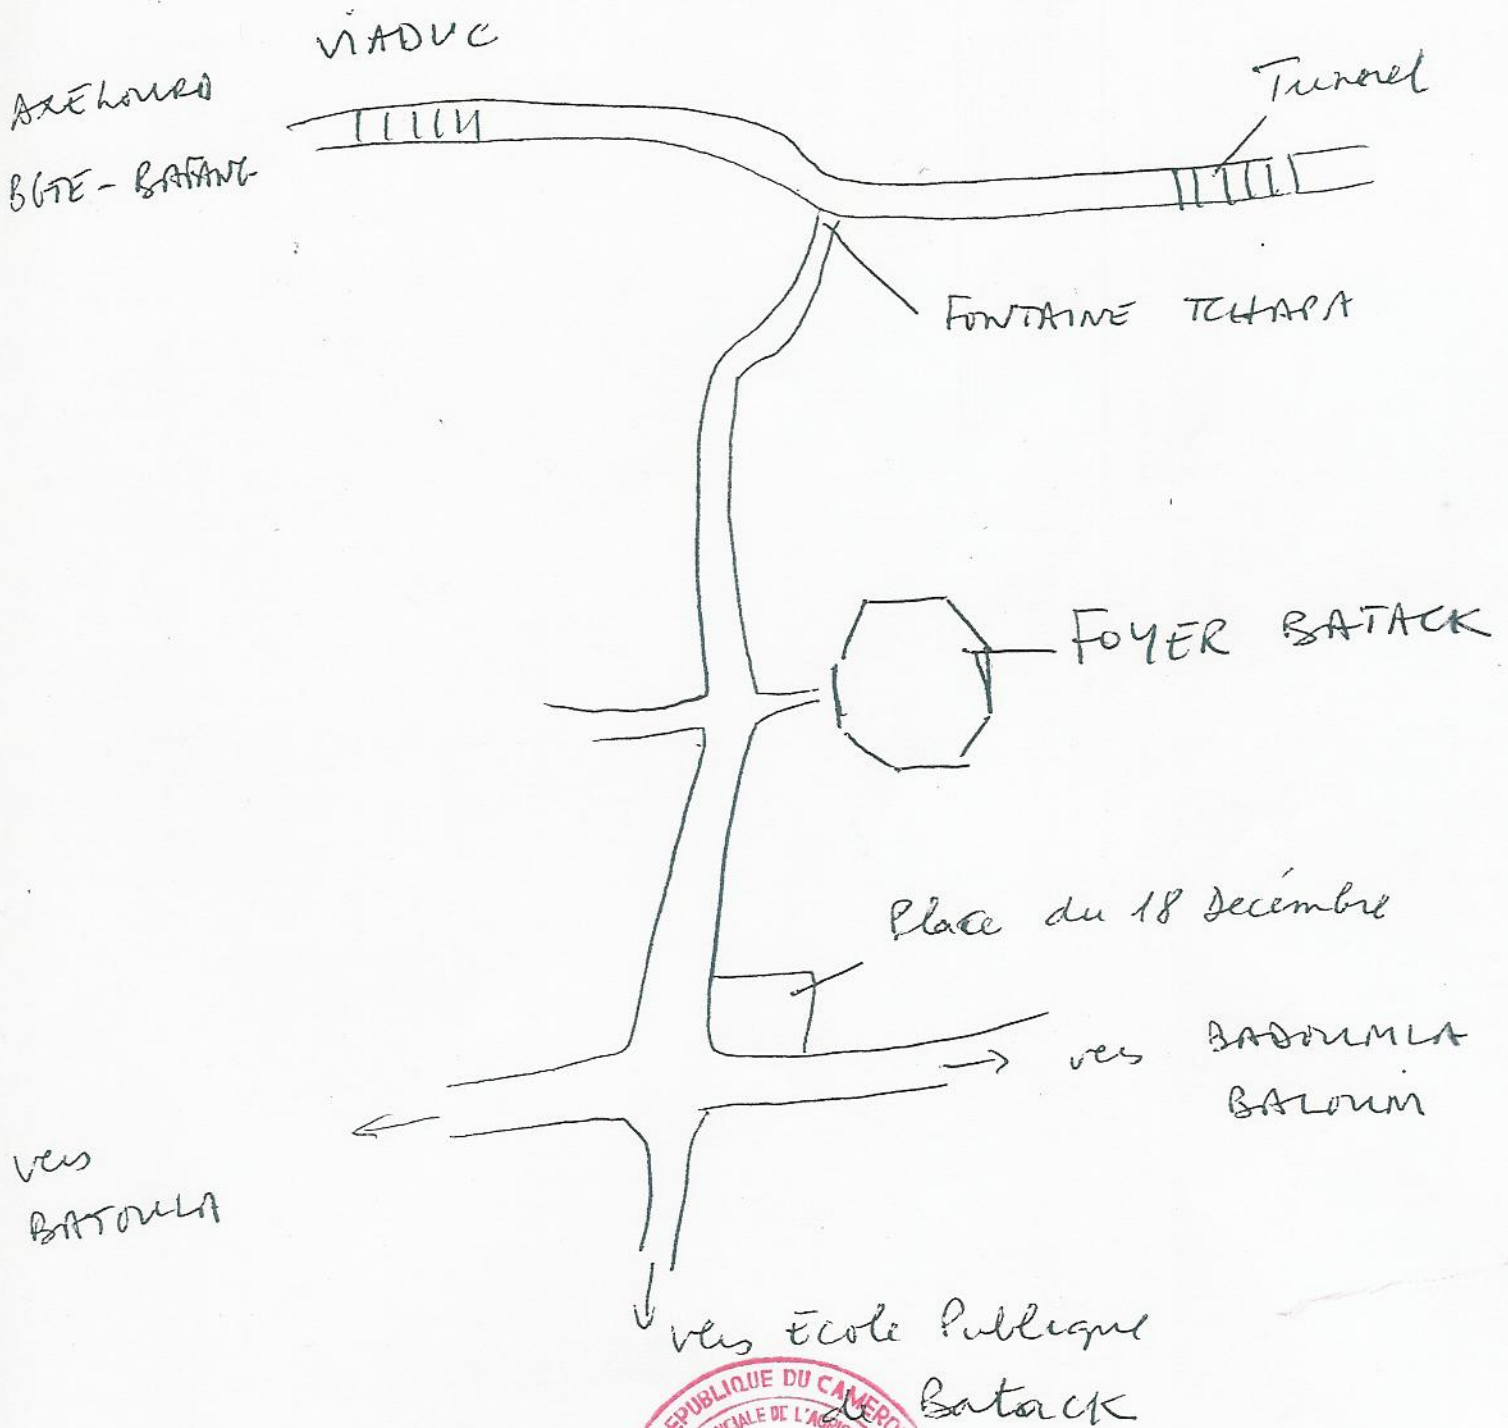 VIADUC
AXE LOURD
BGTE - BAFANG
Tunnel
FONTAINE TCHAPA
FOYER BATACK
Place du 18 Décembre
vers BADOUMLA
BALOUM
vers
BATOULA
vers Ecole Publique
de Batack
REPUBLIQUE DU CAMERO
CIALE DE L'AGRI